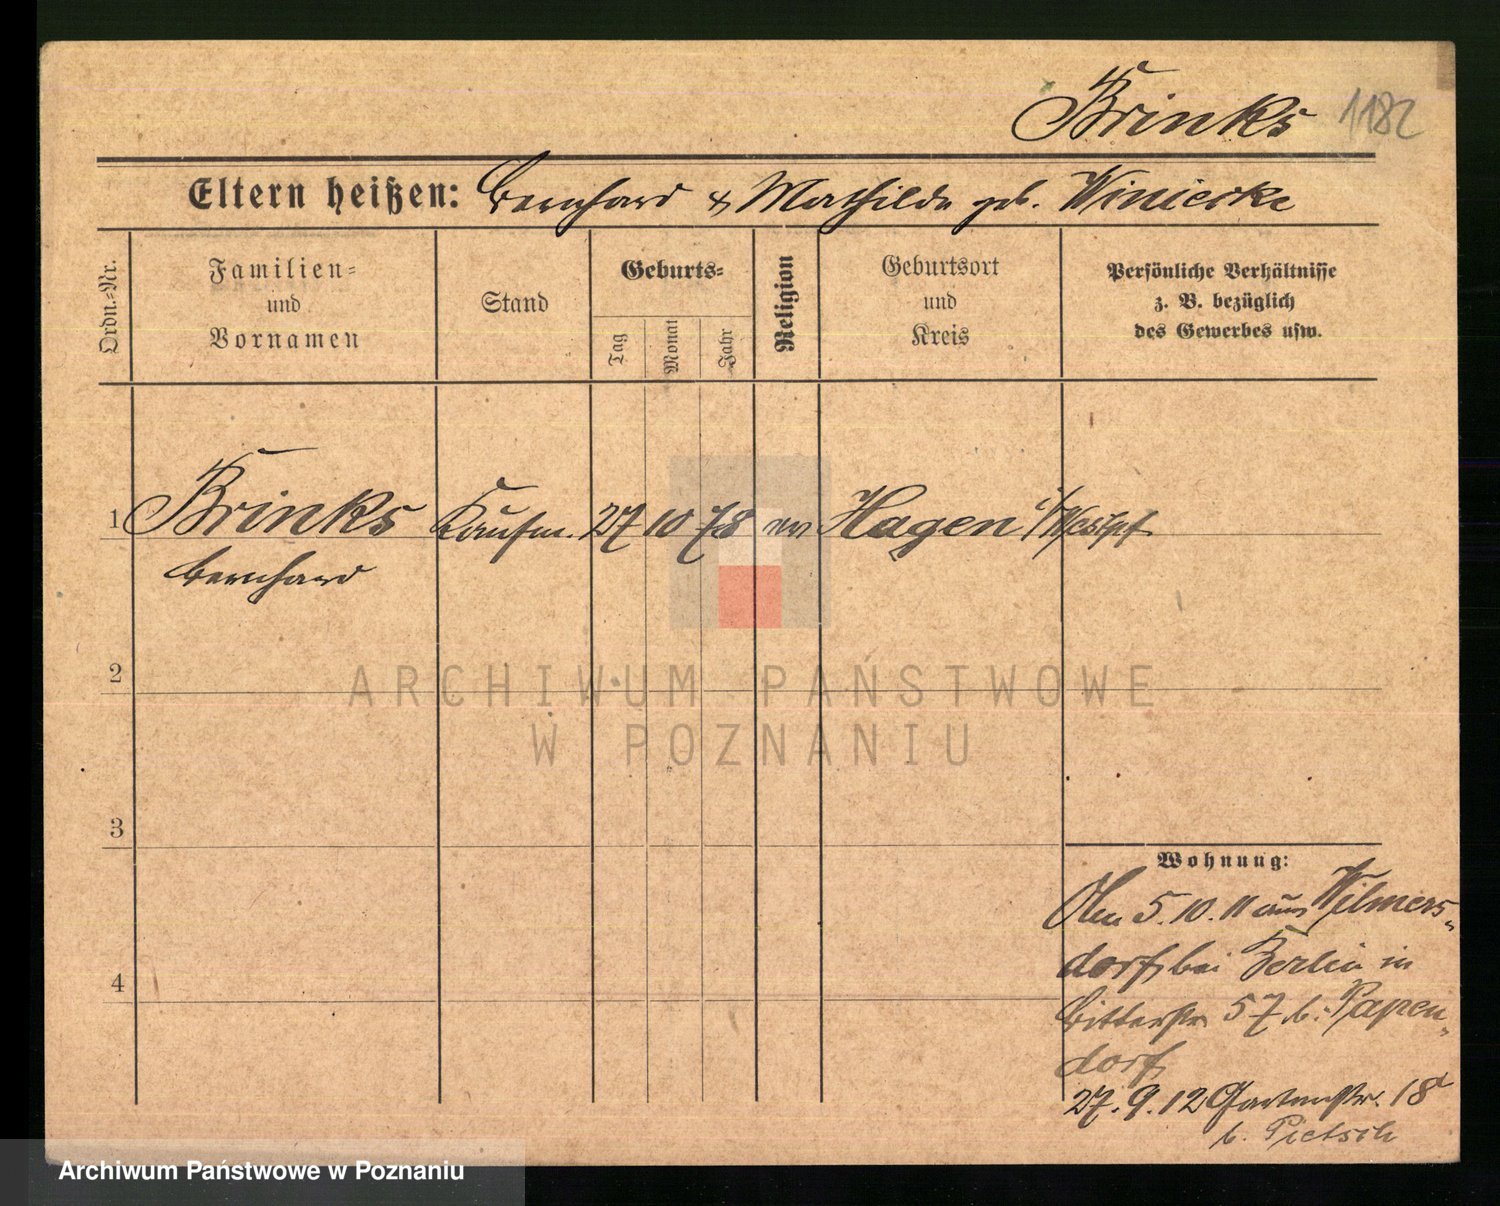 Brinks 1182
Eltern heißen: Bernhard & Mathilde geb. Winiecke
Ordn.-Nr.
Familien-
und
Vornamen
Stand
Geburts-
Tag
Monat
Jahr
Religion
Geburtsort
und
Kreis
Persönliche Verhältnisse
z. B. bezüglich
des Gewerbes usw.
1 Brinks Kaufm. 27 10 78 ev Hagen i/Westpf
Bernhard
2
3
4
Wohnung:
Am 5.10.11 aus Wilmers-
dorf bei Berlin in
Bitterstr 57 b. Papen-
dorf
27.9.12 Gartenstr. 18
b. Pietsch
ARCHIWUM PAŃSTWOWE
W POZNANIU
Archiwum Państwowe w Poznaniu